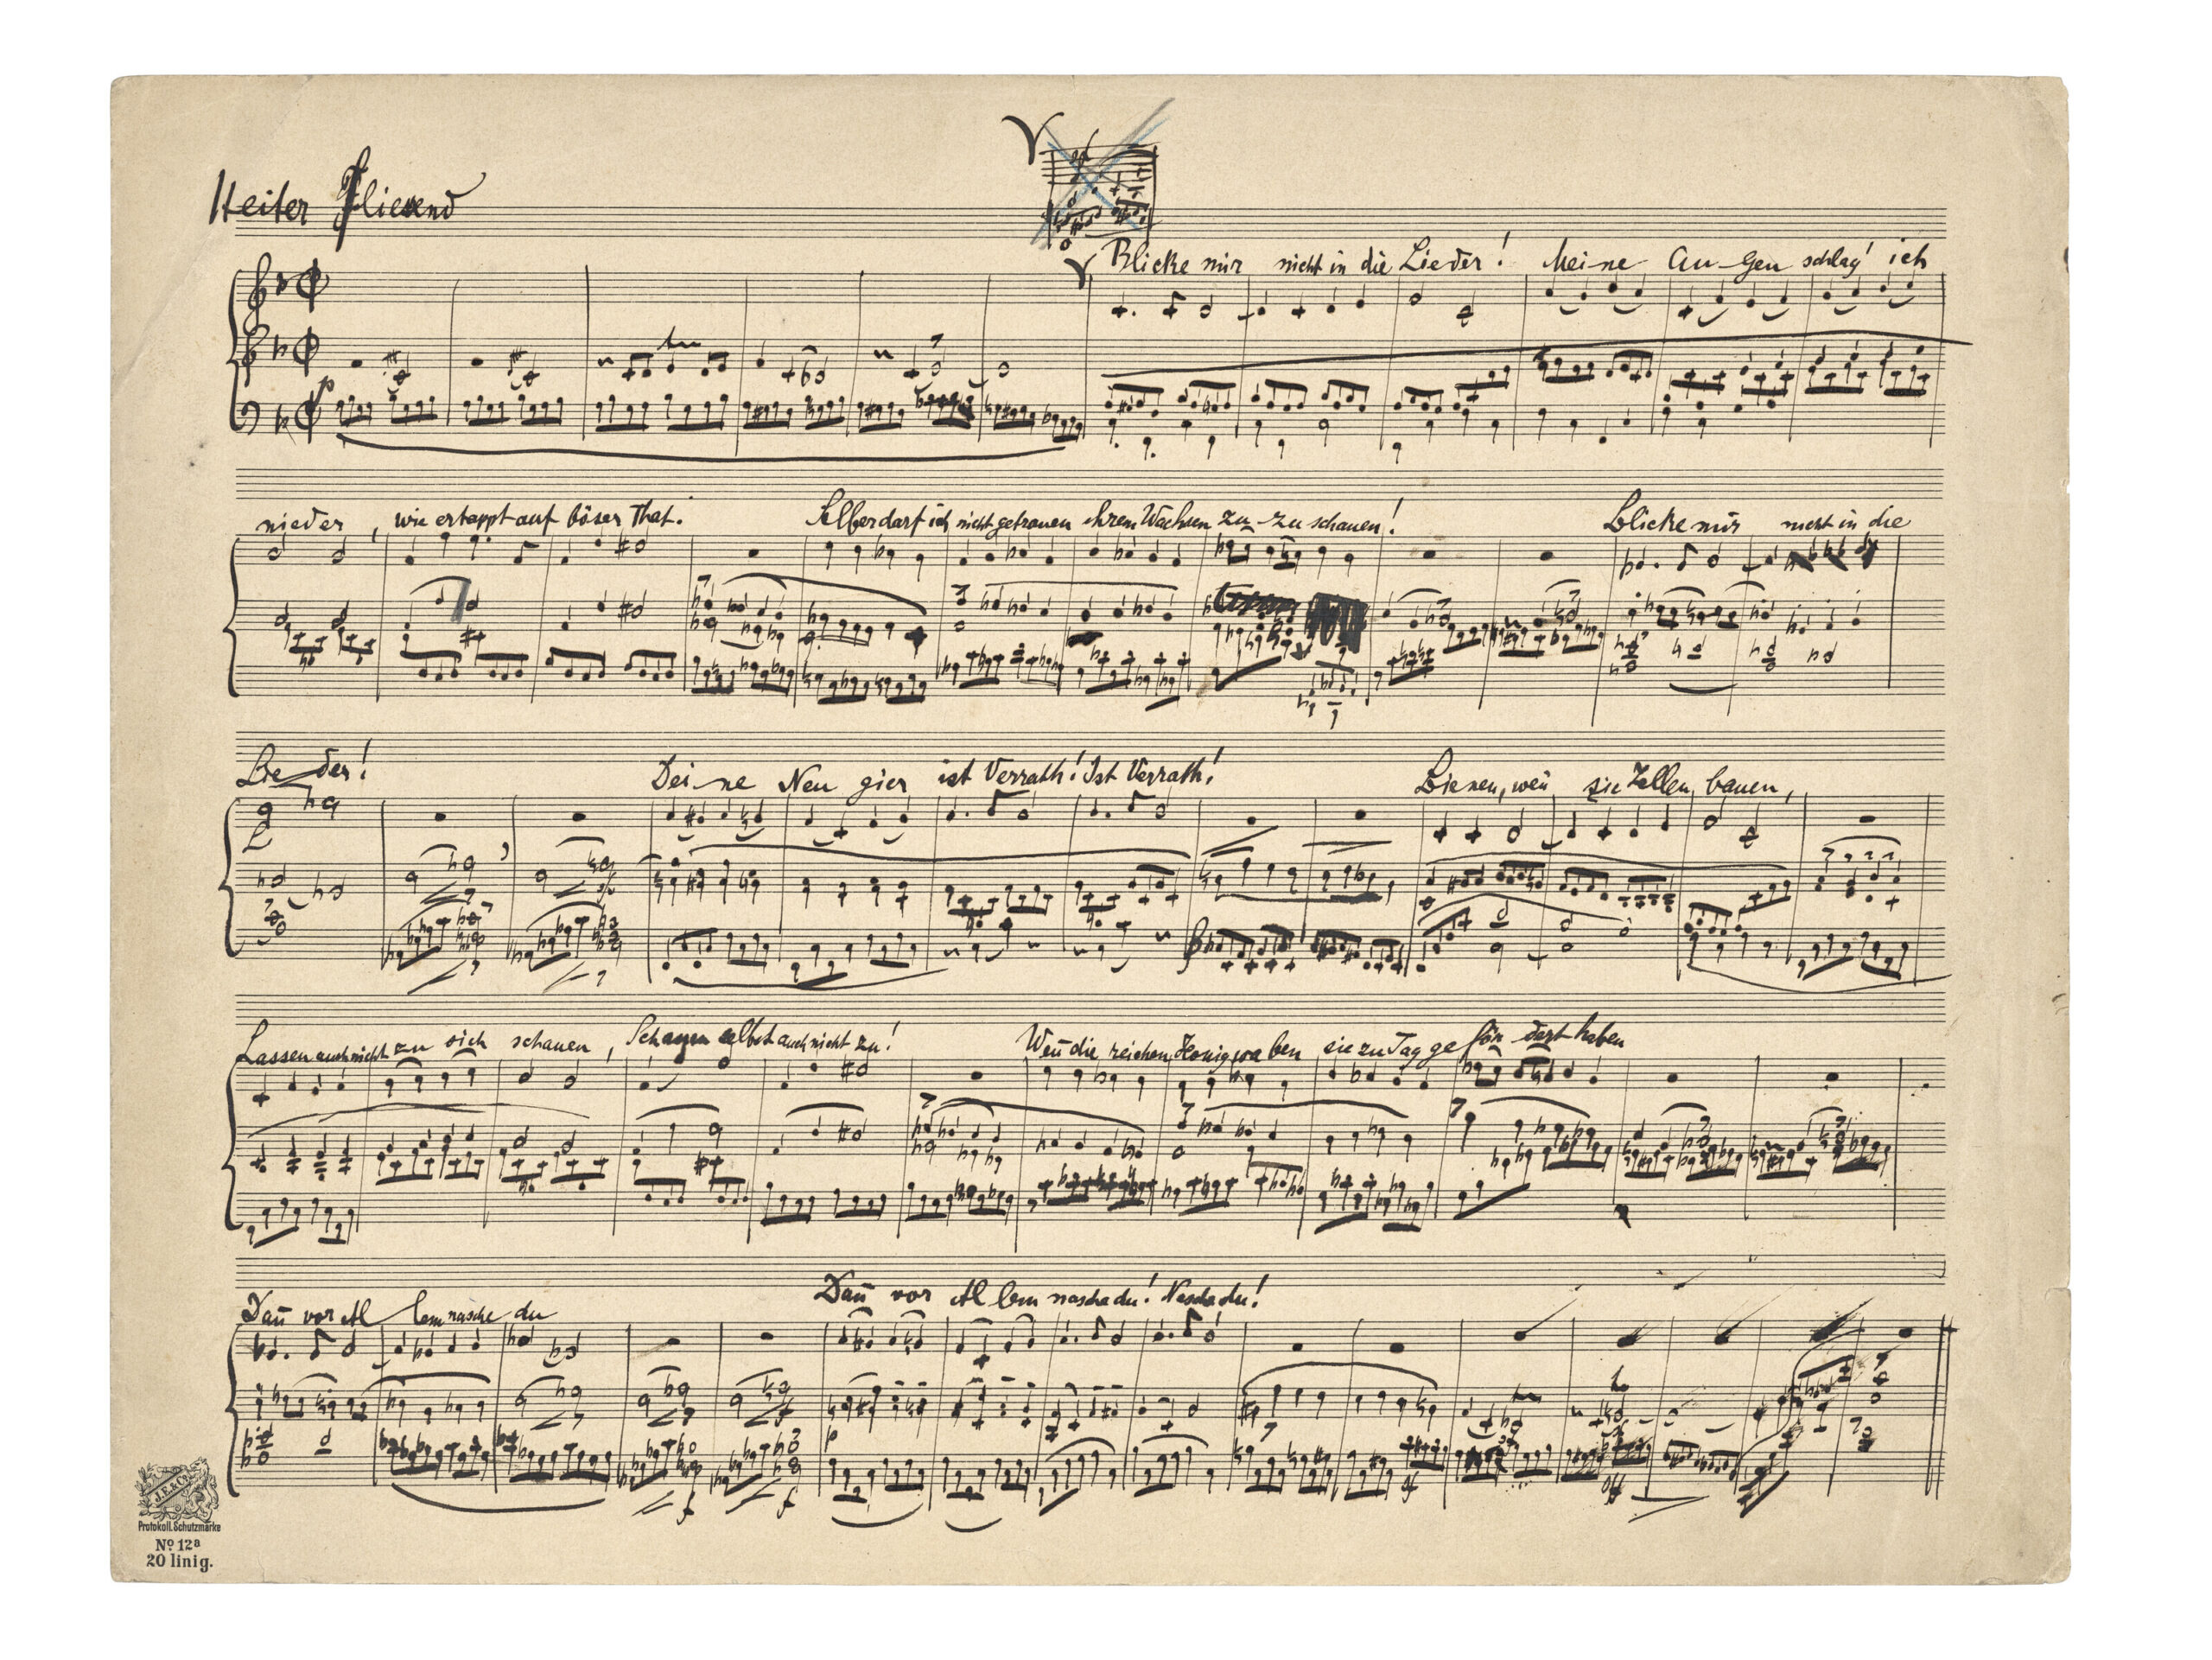 Heiter fliessend
Blicke mir nicht in die Lieder! Meine Augen schlag' ich
nieder, wie ertappt auf böser That.
Selber darf ich nicht getrauen ihrem Wachsen zu-zu schauen! Blicke mir nicht in die
Lie-der! Dei-ne Neu gier ist Verrath! Ist Verrath! Bienen, weñ sie Zellen bauen,
Lassen auch nicht zu sich schauen, Schauen selbst auch nicht zu! Weñ die reichen Honigwaben sie zu Tag geför dert haben
Dañ vor Al lem nasche du Dañ vor Al lem nasche du! Nasche du!
J.E. & Co.
Protokoll. Schutzmarke
No 12a
20 linig.